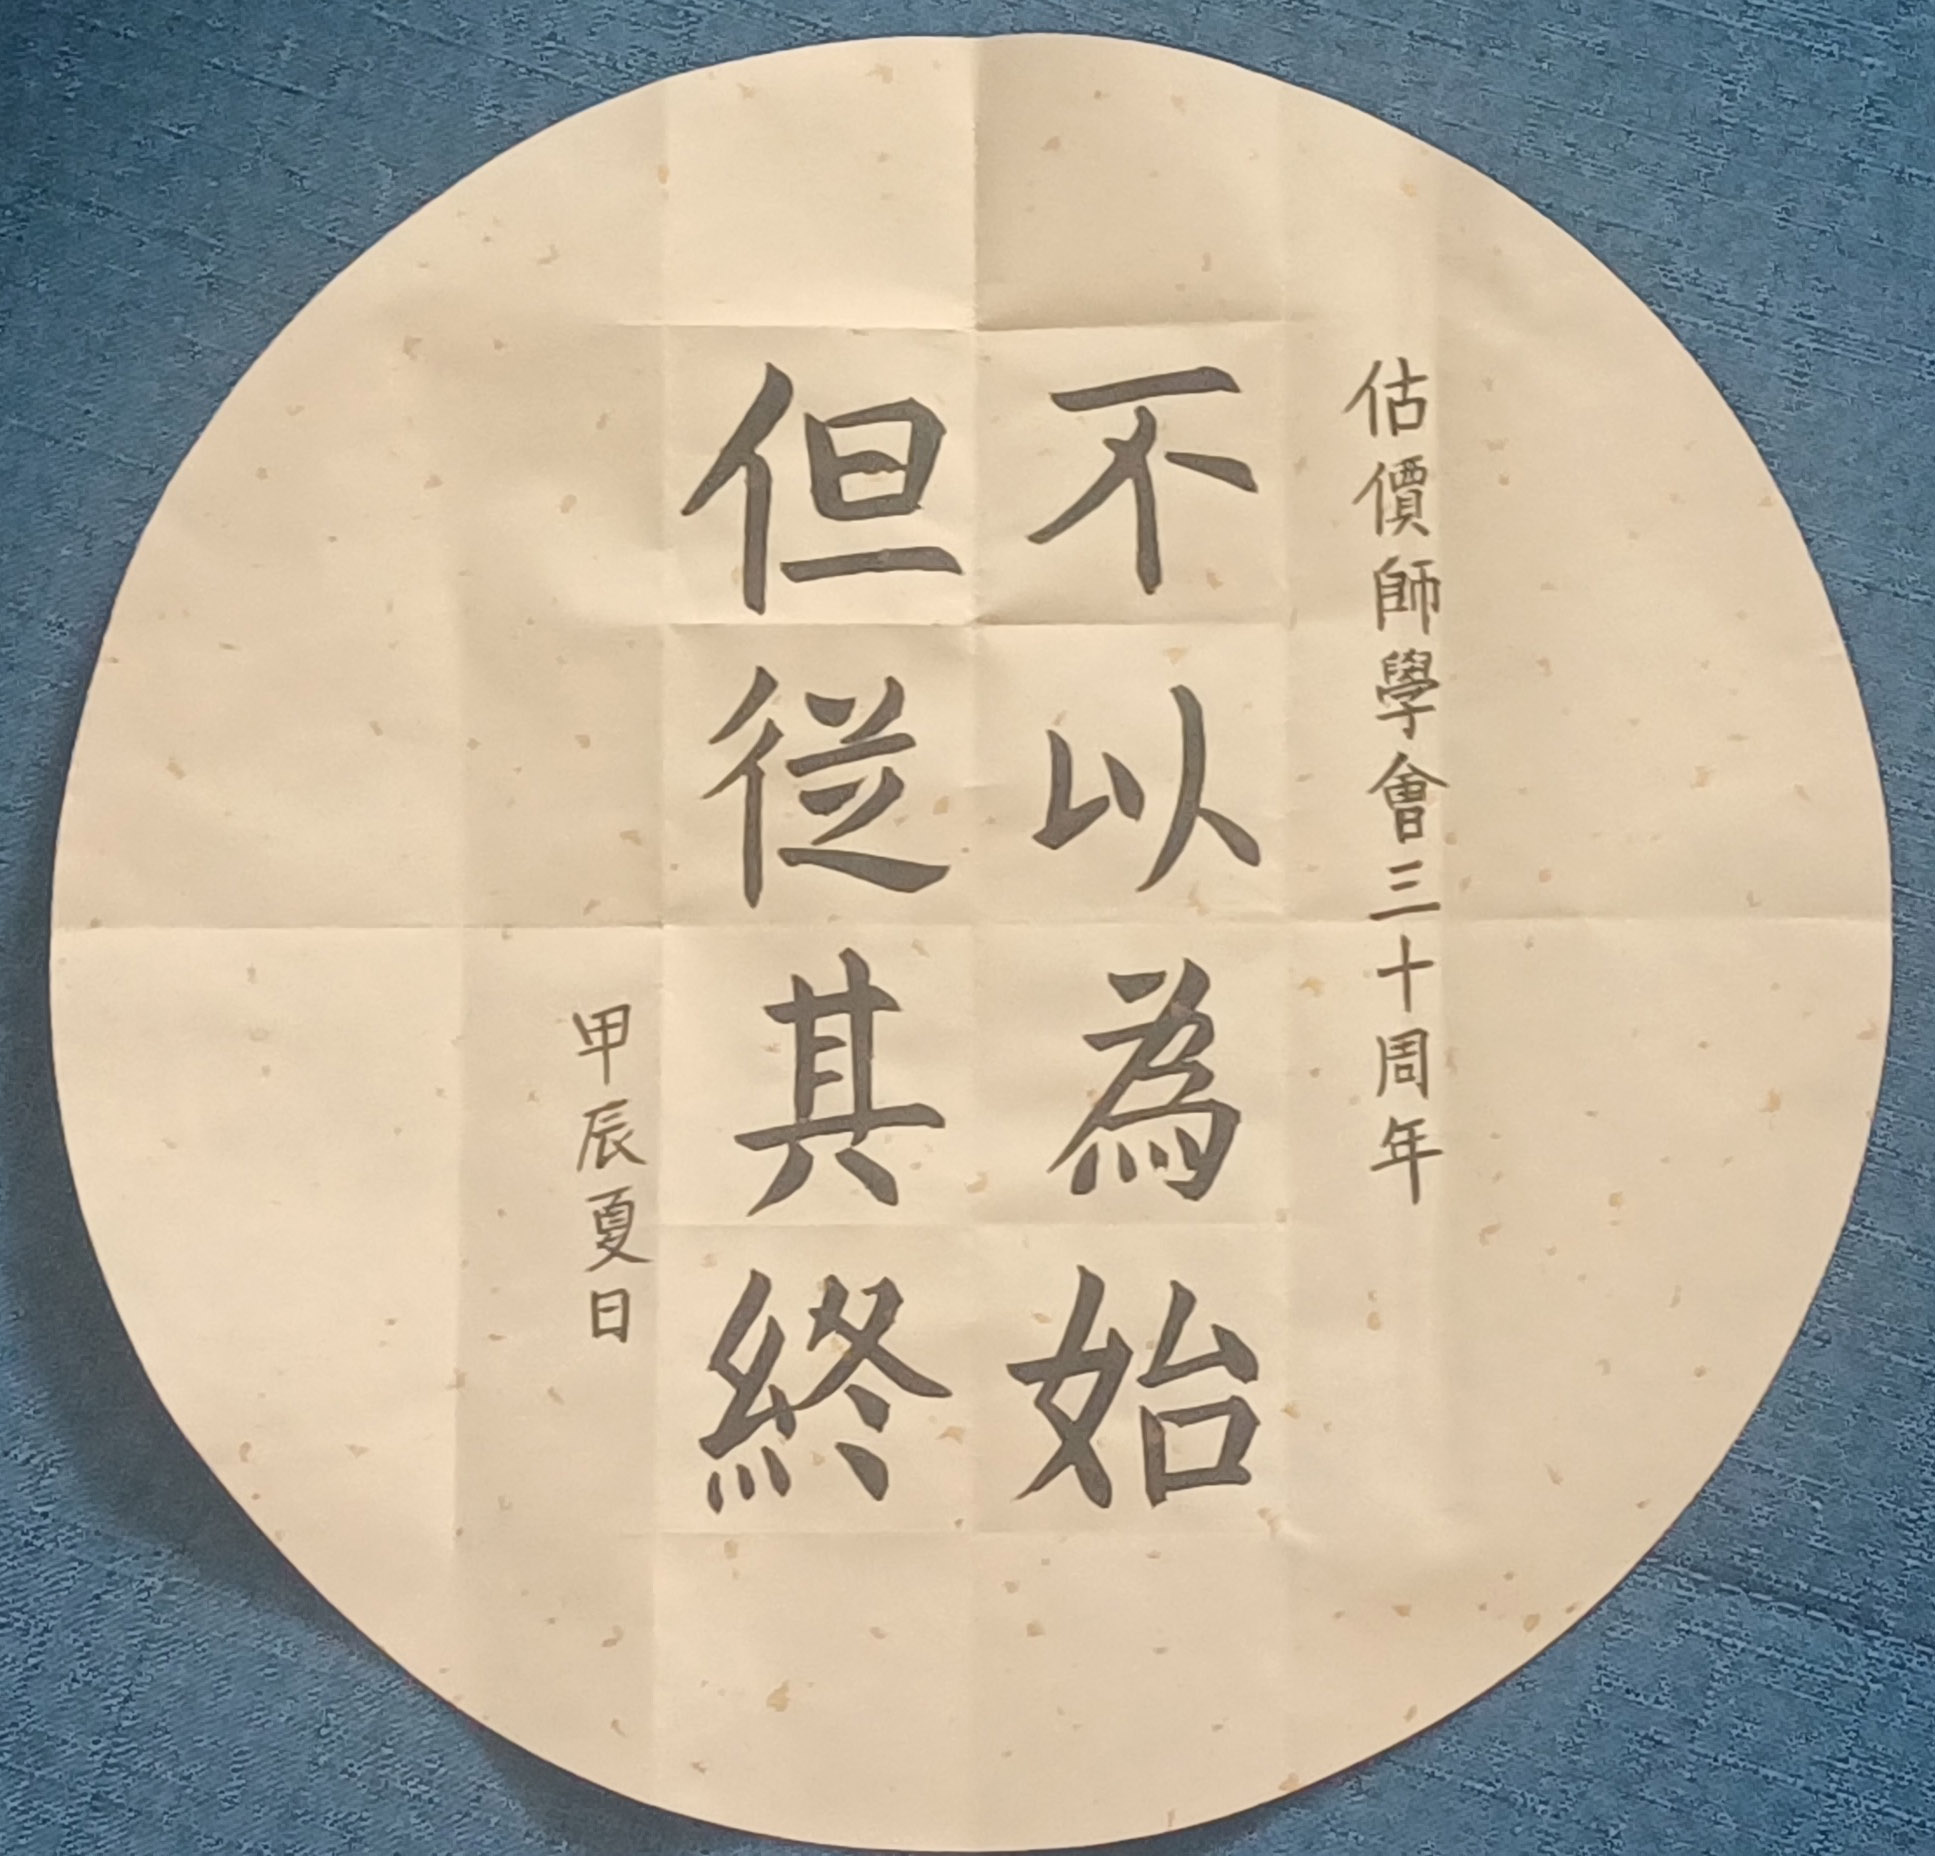 估價師學會三十周年
不以為始
但從其終
甲辰夏日